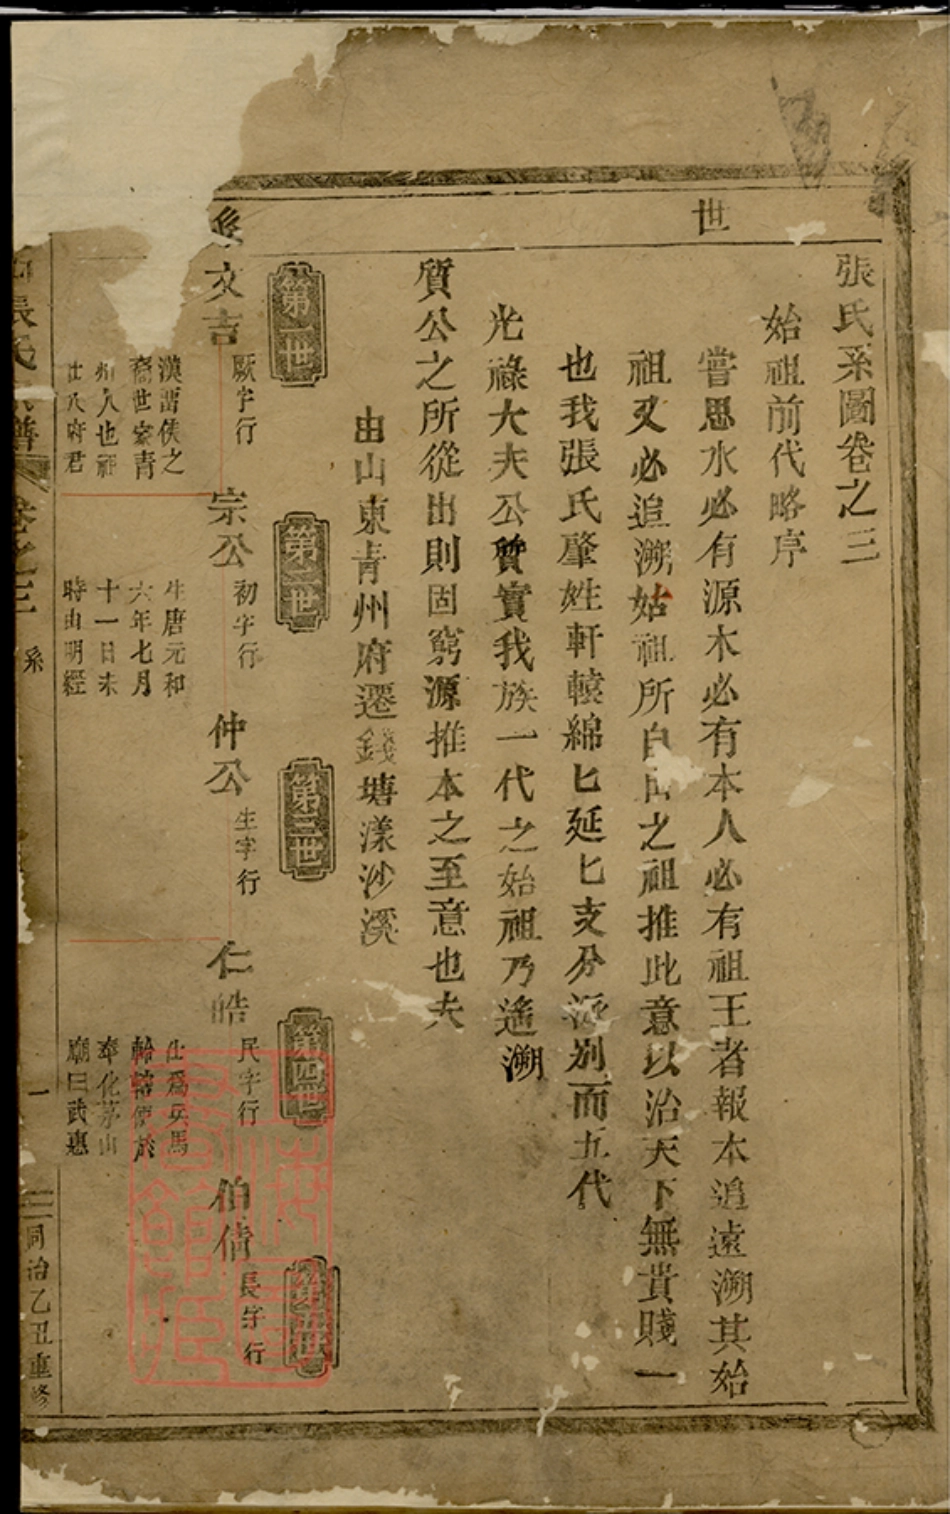 世
張氏系圖卷之三
始祖前代略序
嘗思水必有源木必有本人必有祖王者報本追遠溯其始
祖又必追溯始祖所自出之祖推此意以治天下無貴賤一
也我張氏肇姓軒轅綿匕延匕支分派別而五代
光祿大夫公質實我族一代之始祖乃遙溯
質公之所從出則固窮源推本之至意也夫
由山東青州府遷錢塘漾沙溪
第一世
第二世
第三世
第四世
第五世
系
文吉
厥字行
漢留侯之
裔世家青
州人也祖
仕八府君
宗公
初字行
生唐元和
六年七月
十一日未
時由明經
仲公
生字行
仁皓
民字行
出為兵馬
幹轄使於
奉化茅山
廟曰武惠
伯倩
長字行
張氏 譜
卷之三
系
一
同治乙丑重修